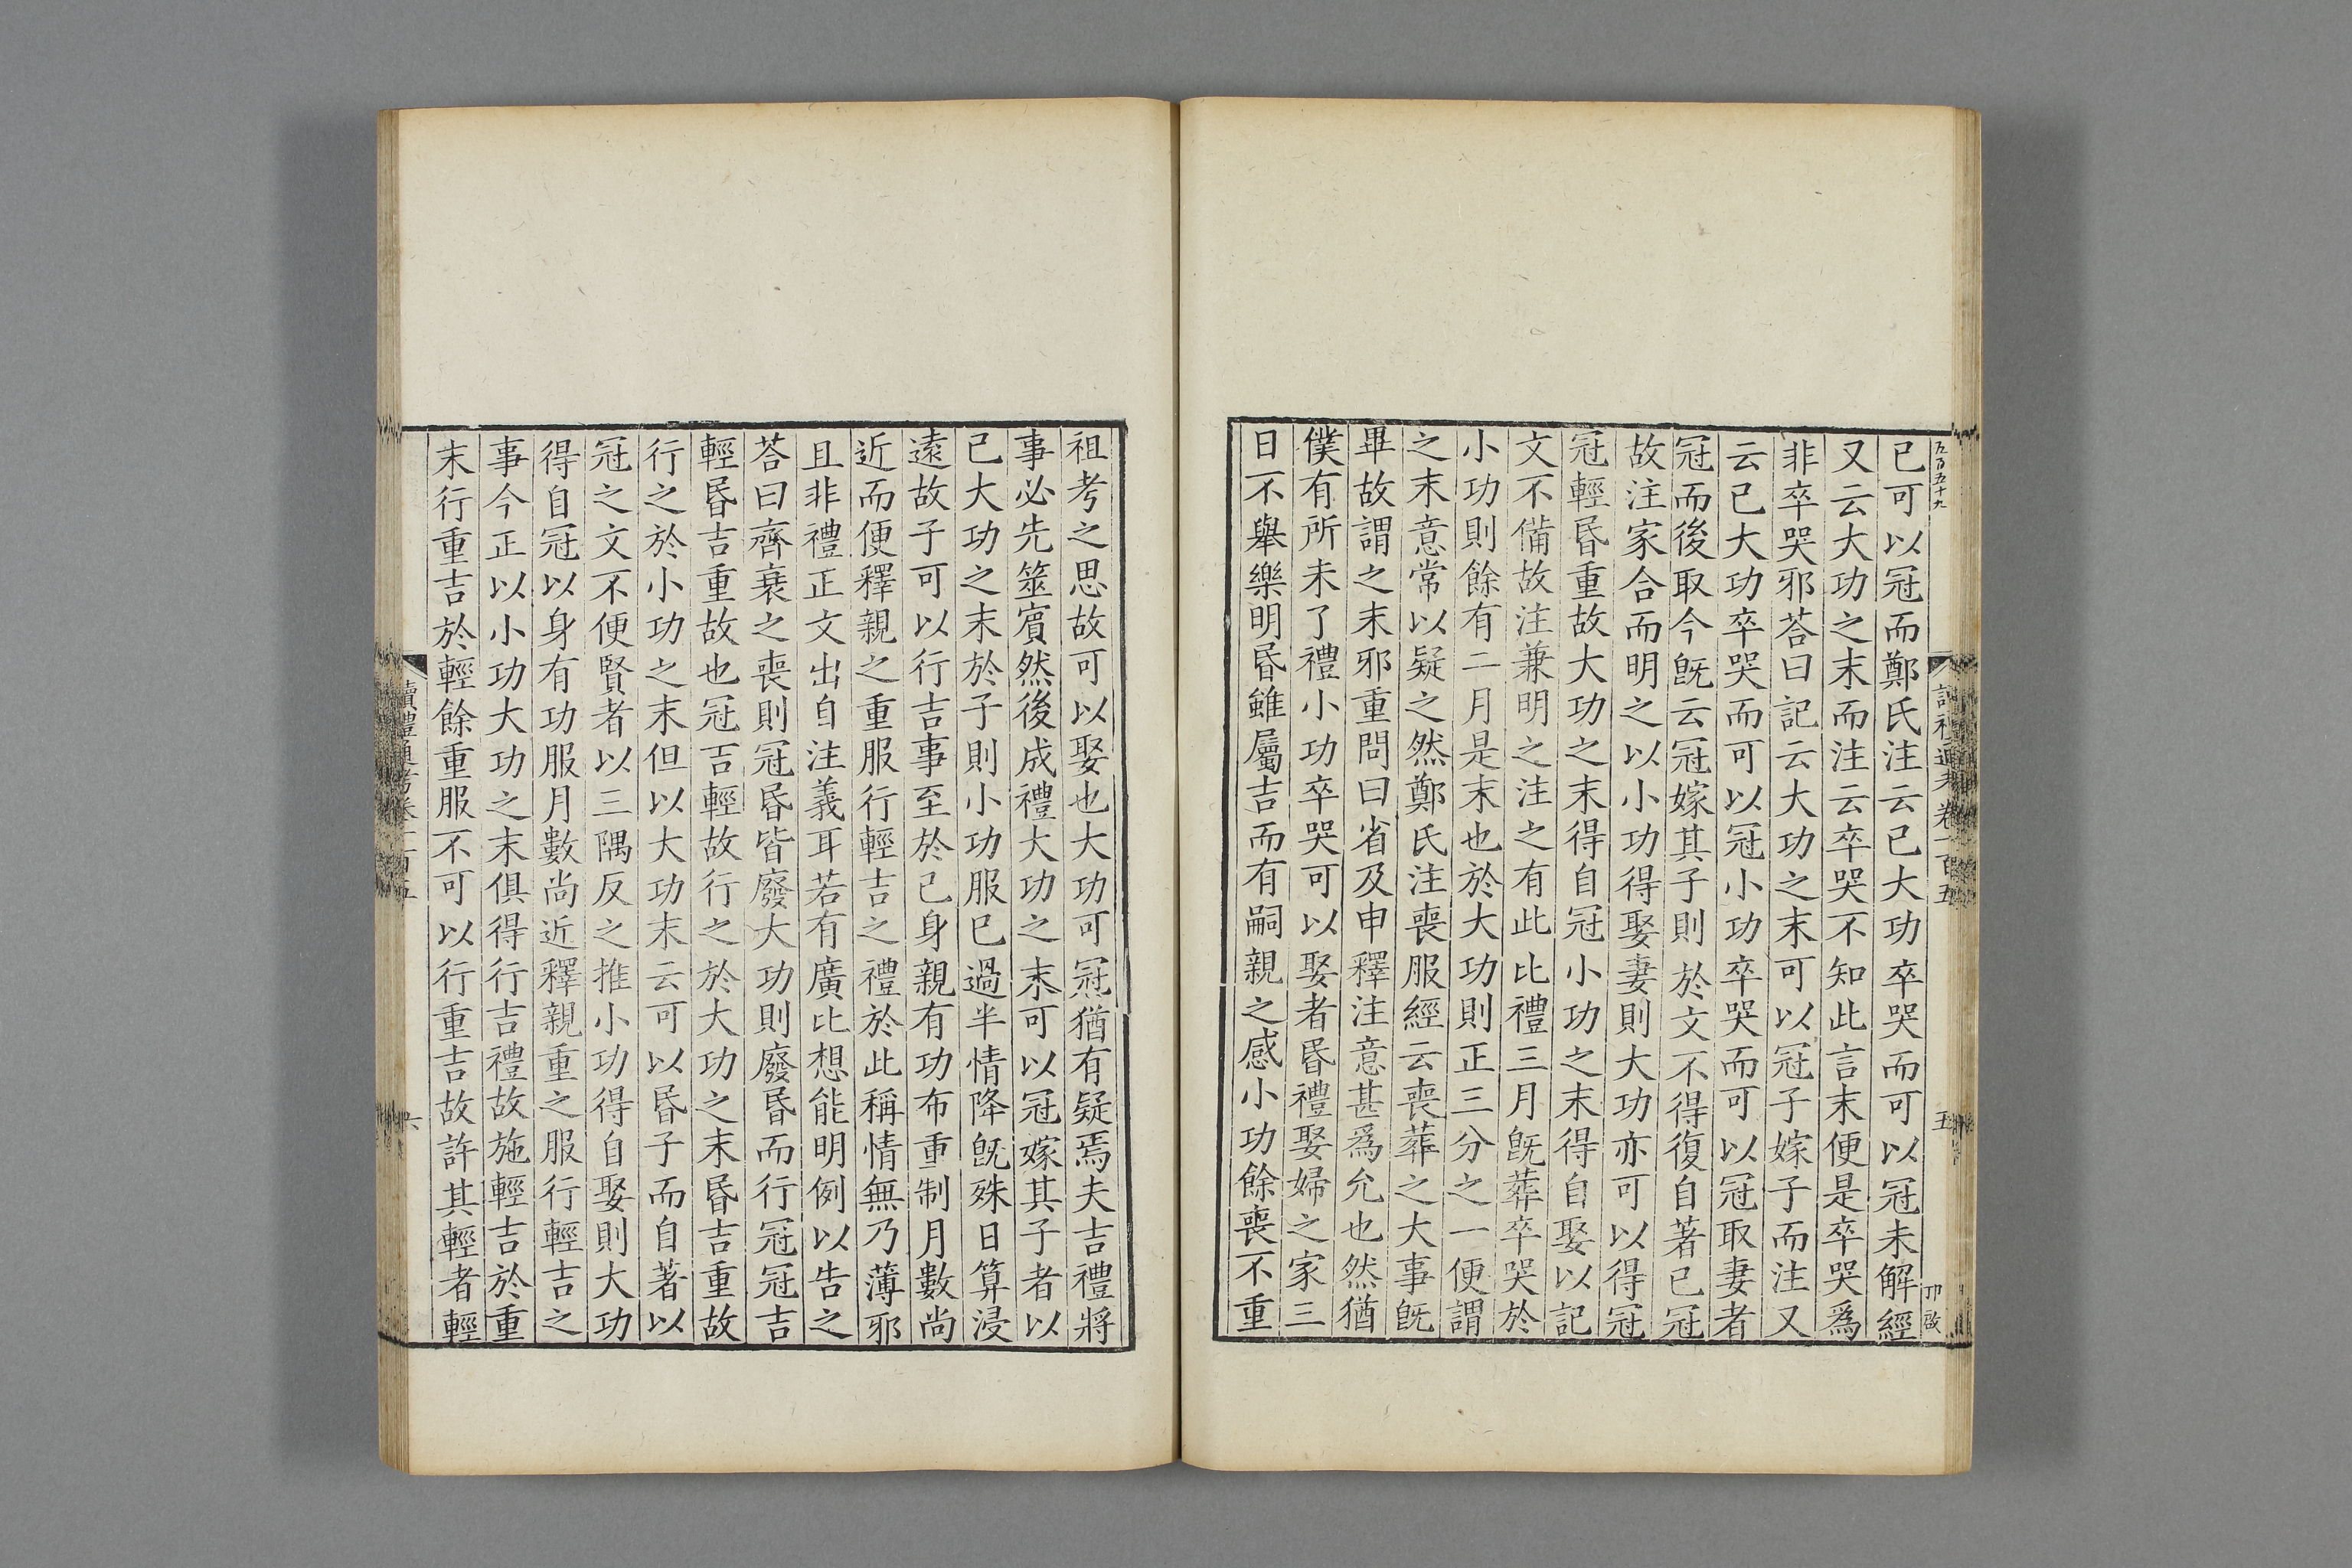 五百五十九
讀禮通考卷一百五
五
已可以冠而鄭氏注云已大功卒哭而可以冠未解經
又云大功之末而注云卒哭不知此言末便是卒哭爲
非卒哭邪荅曰記云大功之末可以冠子嫁子而注又
云已大功卒哭而可以冠小功卒哭而可以冠取妻者
冠而後取今旣云冠嫁其子則於文不得復自著已冠
故注家合而明之以小功得娶妻則大功亦可以得冠
冠輕昏重故大功之末得自冠小功之末得自娶以記
文不備故注兼明之注之有此比禮三月旣葬卒哭於
小功則餘有二月是末也於大功則正三分之一便謂
之末意常以疑之然鄭氏注喪服經云喪葬之大事旣
畢故謂之末邪重問曰省及申釋注意甚爲允也然猶
僕有所未了禮小功卒哭可以娶者昏禮娶婦之家三
日不舉樂明昏雖屬吉而有嗣親之感小功餘喪不重
祖考之思故可以娶也大功可冠猶有疑焉夫吉禮將
事必先筮賓然後成禮大功之末可以冠嫁其子者以
已大功之末於子則小功服已過半情降旣殊日算浸
遠故子可以行吉事至於己身親有功布重制月數尚
近而便釋親之重服行輕吉之禮於此稱情無乃薄邪
且非禮正文出自注義耳若有廣比想能明例以告之
荅曰齊衰之喪則冠昏皆廢大功則廢昏而行冠冠吉
輕昏吉重故也冠吉輕故行之於大功之末昏吉重故
行之於小功之末但以大功末云可以昏子而自著以
冠之文不便賢者以三隅反之推小功得自娶則大功
得自冠以身有功服月數尚近釋親重之服行輕吉之
事今正以小功大功之末俱得行吉禮故施輕吉於重
末行重吉於輕餘重服不可以行重吉故許其輕者輕
讀禮通考卷一百五
六